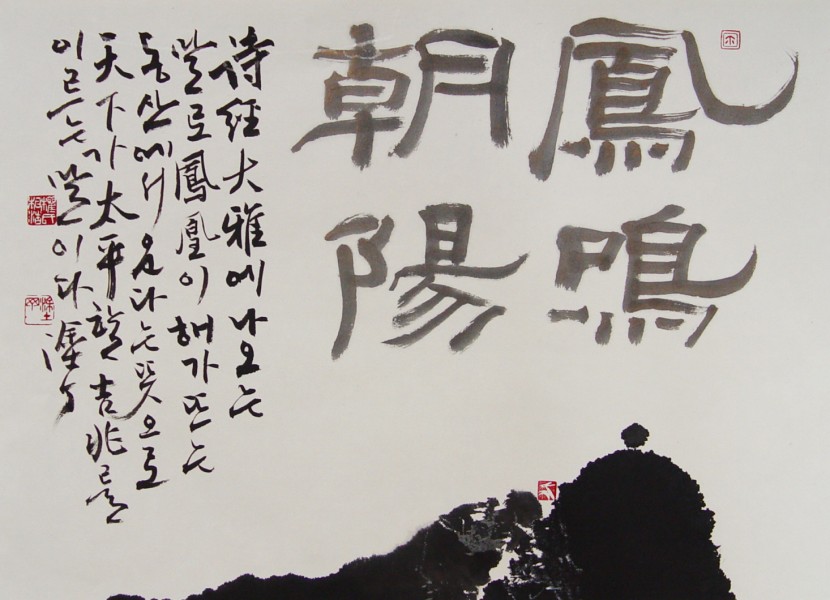 鳳鳴
朝陽
詩經大雅에 나오는
말로 鳳凰이 해가 뜨는
동산에서 운다는 뜻으로
天下가 太平할 吉兆를
이르는 말이다